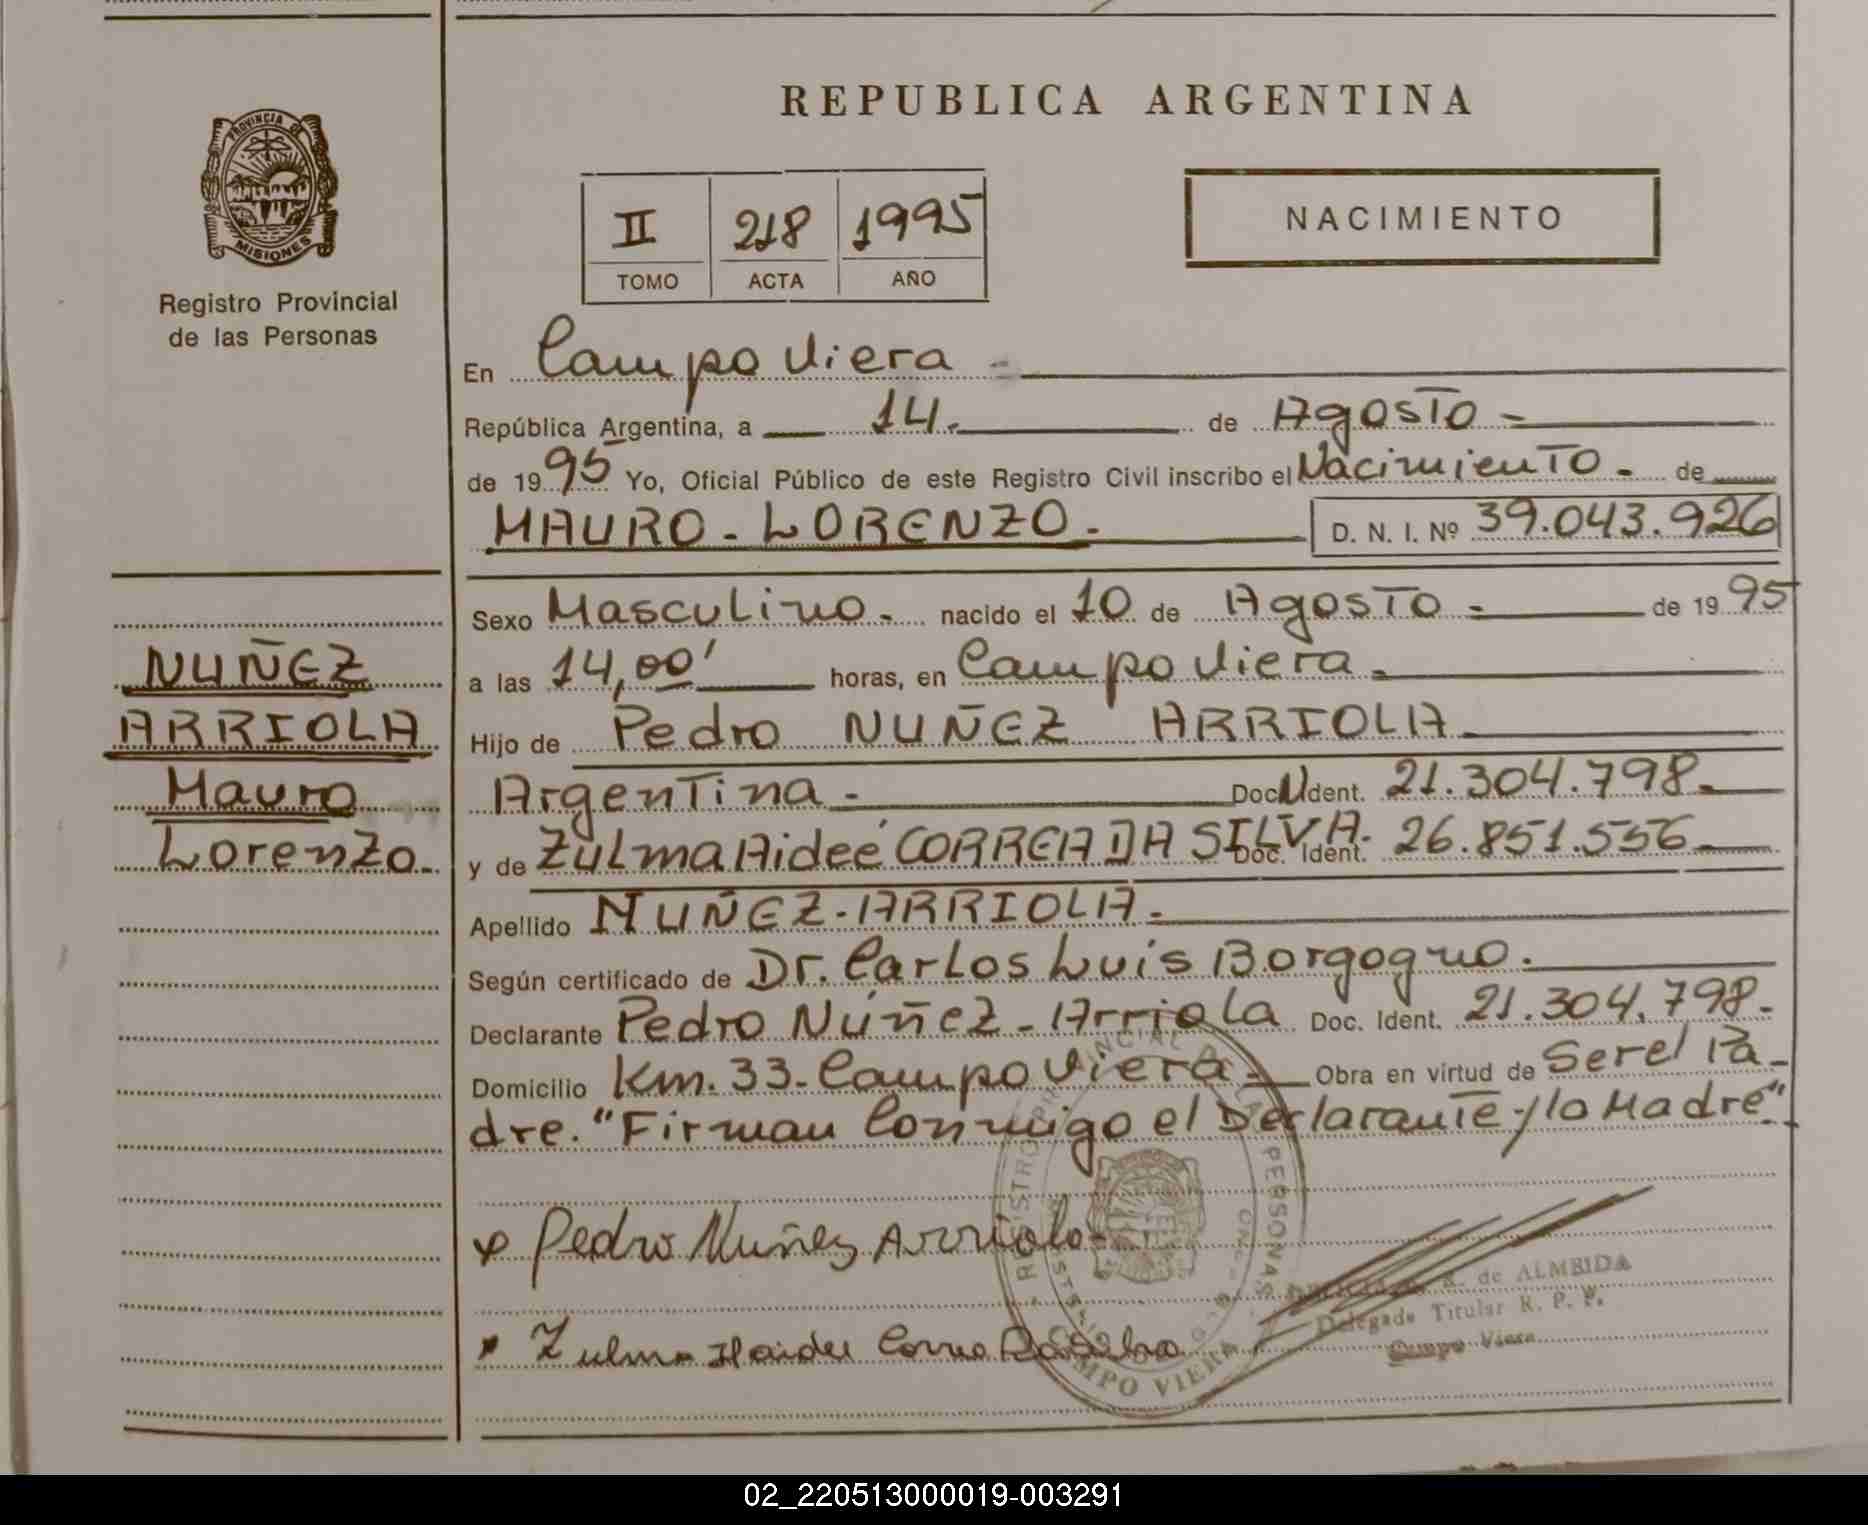 REPUBLICA ARGENTINA
PROVINCIA DE
MISIONES
Registro Provincial
de las Personas
II 218 1995
TOMO ACTA AÑO
NACIMIENTO
En Campo Viera -
República Argentina, a 14. de Agosto -
de 1995 Yo, Oficial Público de este Registro Civil inscribo el Nacimiento - de
MAURO - LORENZO - D. N. I. Nº 39.043.926
Sexo Masculino - nacido el 10 de Agosto - de 1995
a las 14,00' horas, en Campo Viera -
Hijo de Pedro NUÑEZ ARRIOLA
Argentina - Doc. Ident. 21.304.798 -
y de Zulma Aideé CORREA DA SILVA. Doc. Ident. 26.851.556 -
Apellido NUÑEZ - ARRIOLA -
Según certificado de Dr. Carlos Luis Borgogno.
Declarante Pedro Núñez - Arriola Doc. Ident. 21.304.798 -
Domicilio Km. 33 - Campo Viera - Obra en virtud de Ser el Pa-
dre. "Firman Conmigo el Declarante y la Madre".
NUÑEZ
ARRIOLA
Mauro
Lorenzo.
x Pedro Nuñez Arriola
Zulma Haidee Correa Da Silva
REGISTRO PROVINCIAL DE LAS PERSONAS
CAMPO VIERA
R. de ALMEIDA
Delegado Titular R. P. P.
Campo Viera
02_220513000019-003291